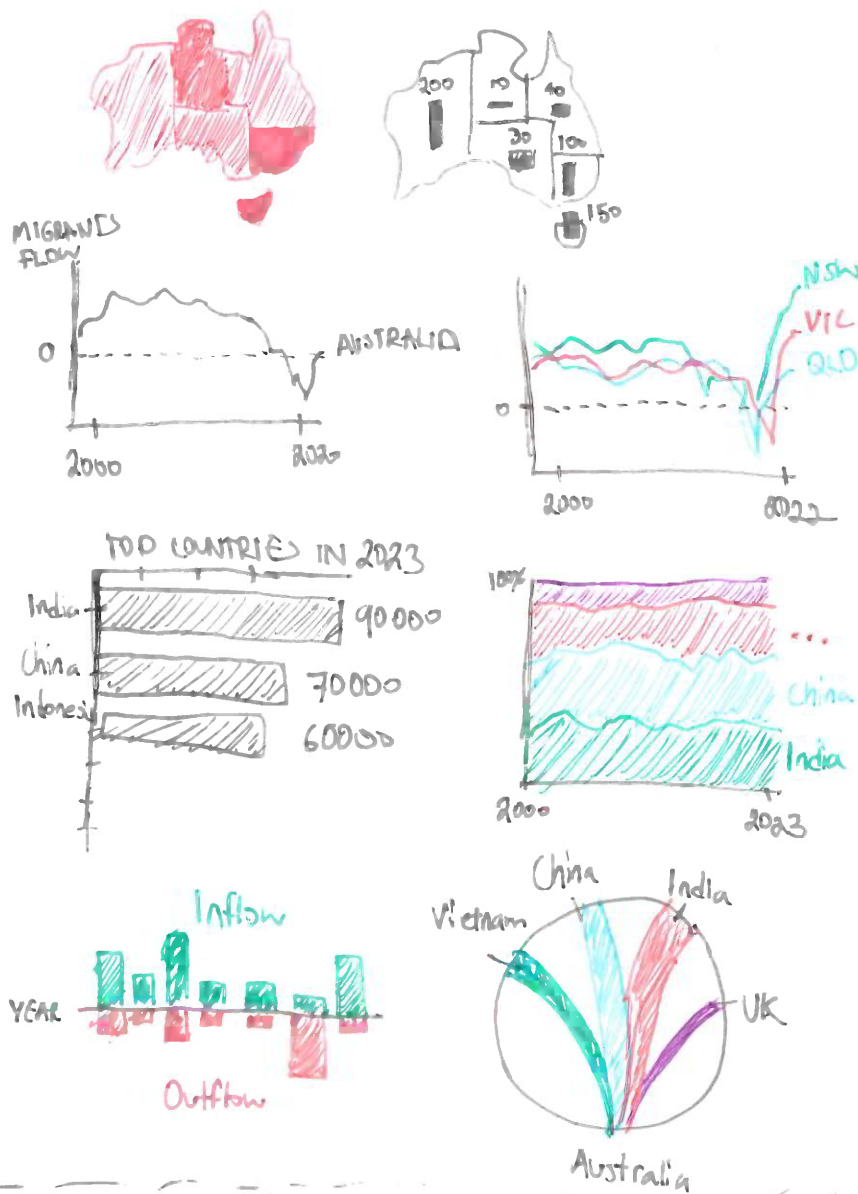 200
10
40
30
100
150
MIGRANTS
FLOW
0
AUSTRALIA
2000
2020
NSW
VIC
QLD
0
2000
2022
TOP COUNTRIES IN 2023
India
90000
China
70000
Intones
60000
100%
...
China
India
2000
2023
Inflow
YEAR
Outflow
China
India
Vietnam
UK
Australia